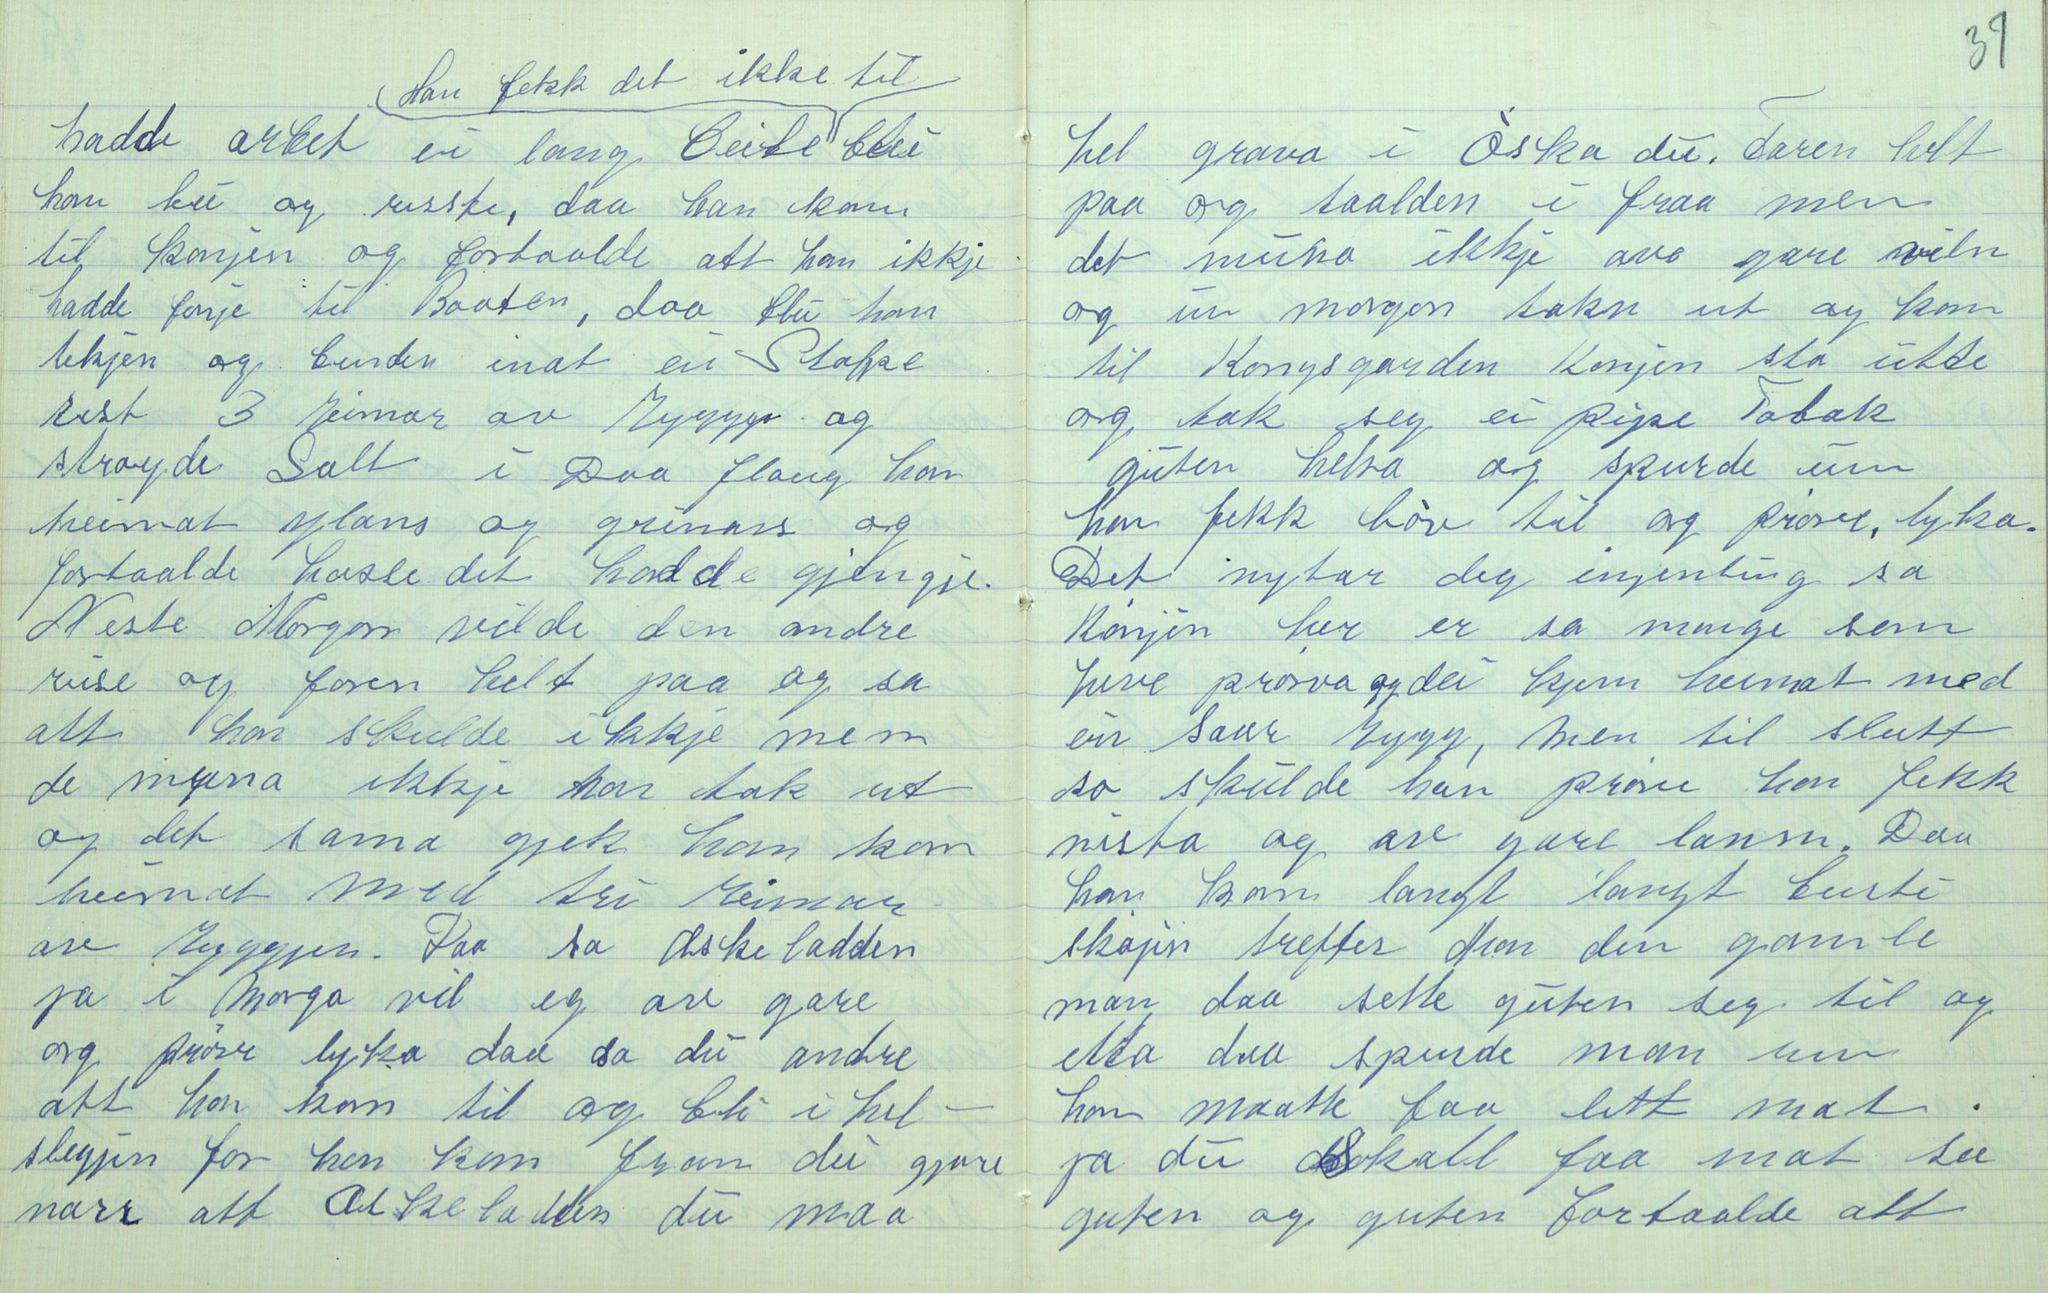 39
Han fekk det ikke til
hadde arbet ei lang Beite blei
han lei og reiste, daa han kom
til konjen og fortaalde att han ikkje
hadde fenje til Baaten, daa blei han
tekjen og bunden inat ein Stappe
rest 3 Reimar av Ryggjen og
strøyde Salt i Daa flaug han
heimat Uglans og grinans og
fortaalde hasse det hadde gjengje.
Neste Morgon vilde den andre
reise og faren helt paa og sa
att han skulde ikkje men
de myna ikkje han tok ut
og det sama gjek han kom
heimat med tri Reimar
av Ryggjen. Daa sa Askeladden
ja i Morga vil eg ave gare
og prøve lyka daa sa dei andre
att han kom til og bli i hel-
slegjin for han kom fram dei gjore
narr att Askeladden du maa
hel grava i Öska du. Faren helt
paa og taalden i fraa men
det muna ikkje ava gare viln
og ein morgon tokn ut og kom
til Kongsgarden Konjen sto utte
og tok seg ei pipe Tobak
guten helsa og spurde um
han fekk löv til og prøve, lyka.
Det nytar deg injenting sa
Konjen her er so mange som
heve prøva og dei kjem heimat med
ein Saar Rygg, men til slutt
so skulde han prøve han fekk
nista og ave gare lansn. Daa
han kom langt langt burti
skojin treffer han den gamle
man daa sette guten seg til og
etta daa spurde man um
han maatte faa litt mat.
ja du Skall faa mat sa
guten og guten fortaalde att